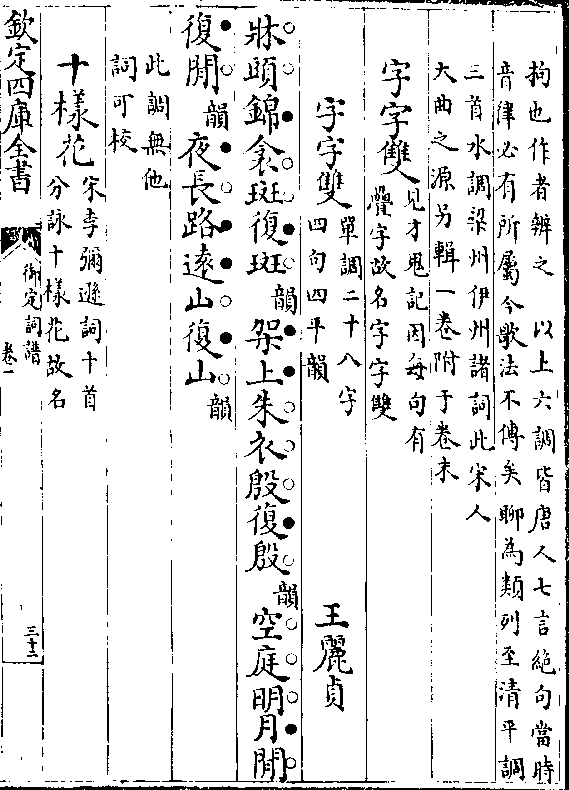 拘也作者辨之　以上六調皆唐人七言絶句當時
音律必有所屬今歌法不傳矣聊為類列至清平調
三首水調梁州伊州諸詞此宋人
大曲之源另輯一卷附于卷末
字字雙　見才鬼記因每句有
疊字故名字字雙
字字雙　單調二十八字
四句四平韻　王麗貞
牀頭錦衾斑復斑韻架上朱衣殷復殷韻空庭明月閒
復閒韻夜長路遠山復山韻
此調無他
詞可校
十樣花　宋李彌遜詞十首
分詠十樣花故名
欽定四庫全書　御定詞譜　卷一　三十二